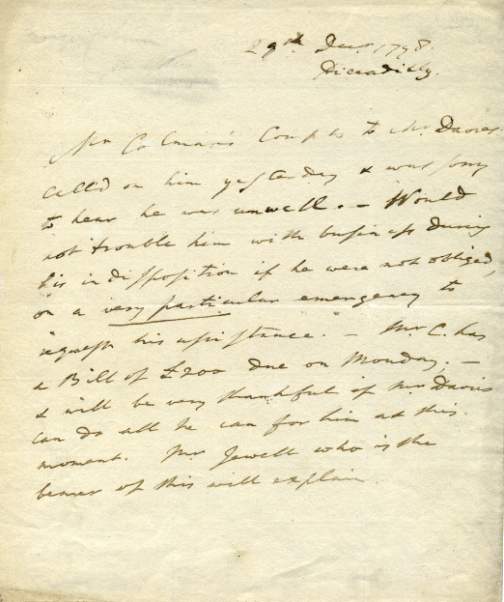 29th Decr. 1798.
Piccadilly.
Mr Colman's Compts to Mr. Davies
called on him yesterday & was sorry
to hear he was unwell. – Would
not trouble him with business during
his indisposition if he were not obliged
on a very particular emergency to
request his assistance. – Mr C. has
a Bill of £200 due on Monday; –
& will be very thankful if Mr Davies
can do all he can for him at this
moment. Mr Jewell who is the
bearer of this will explain.